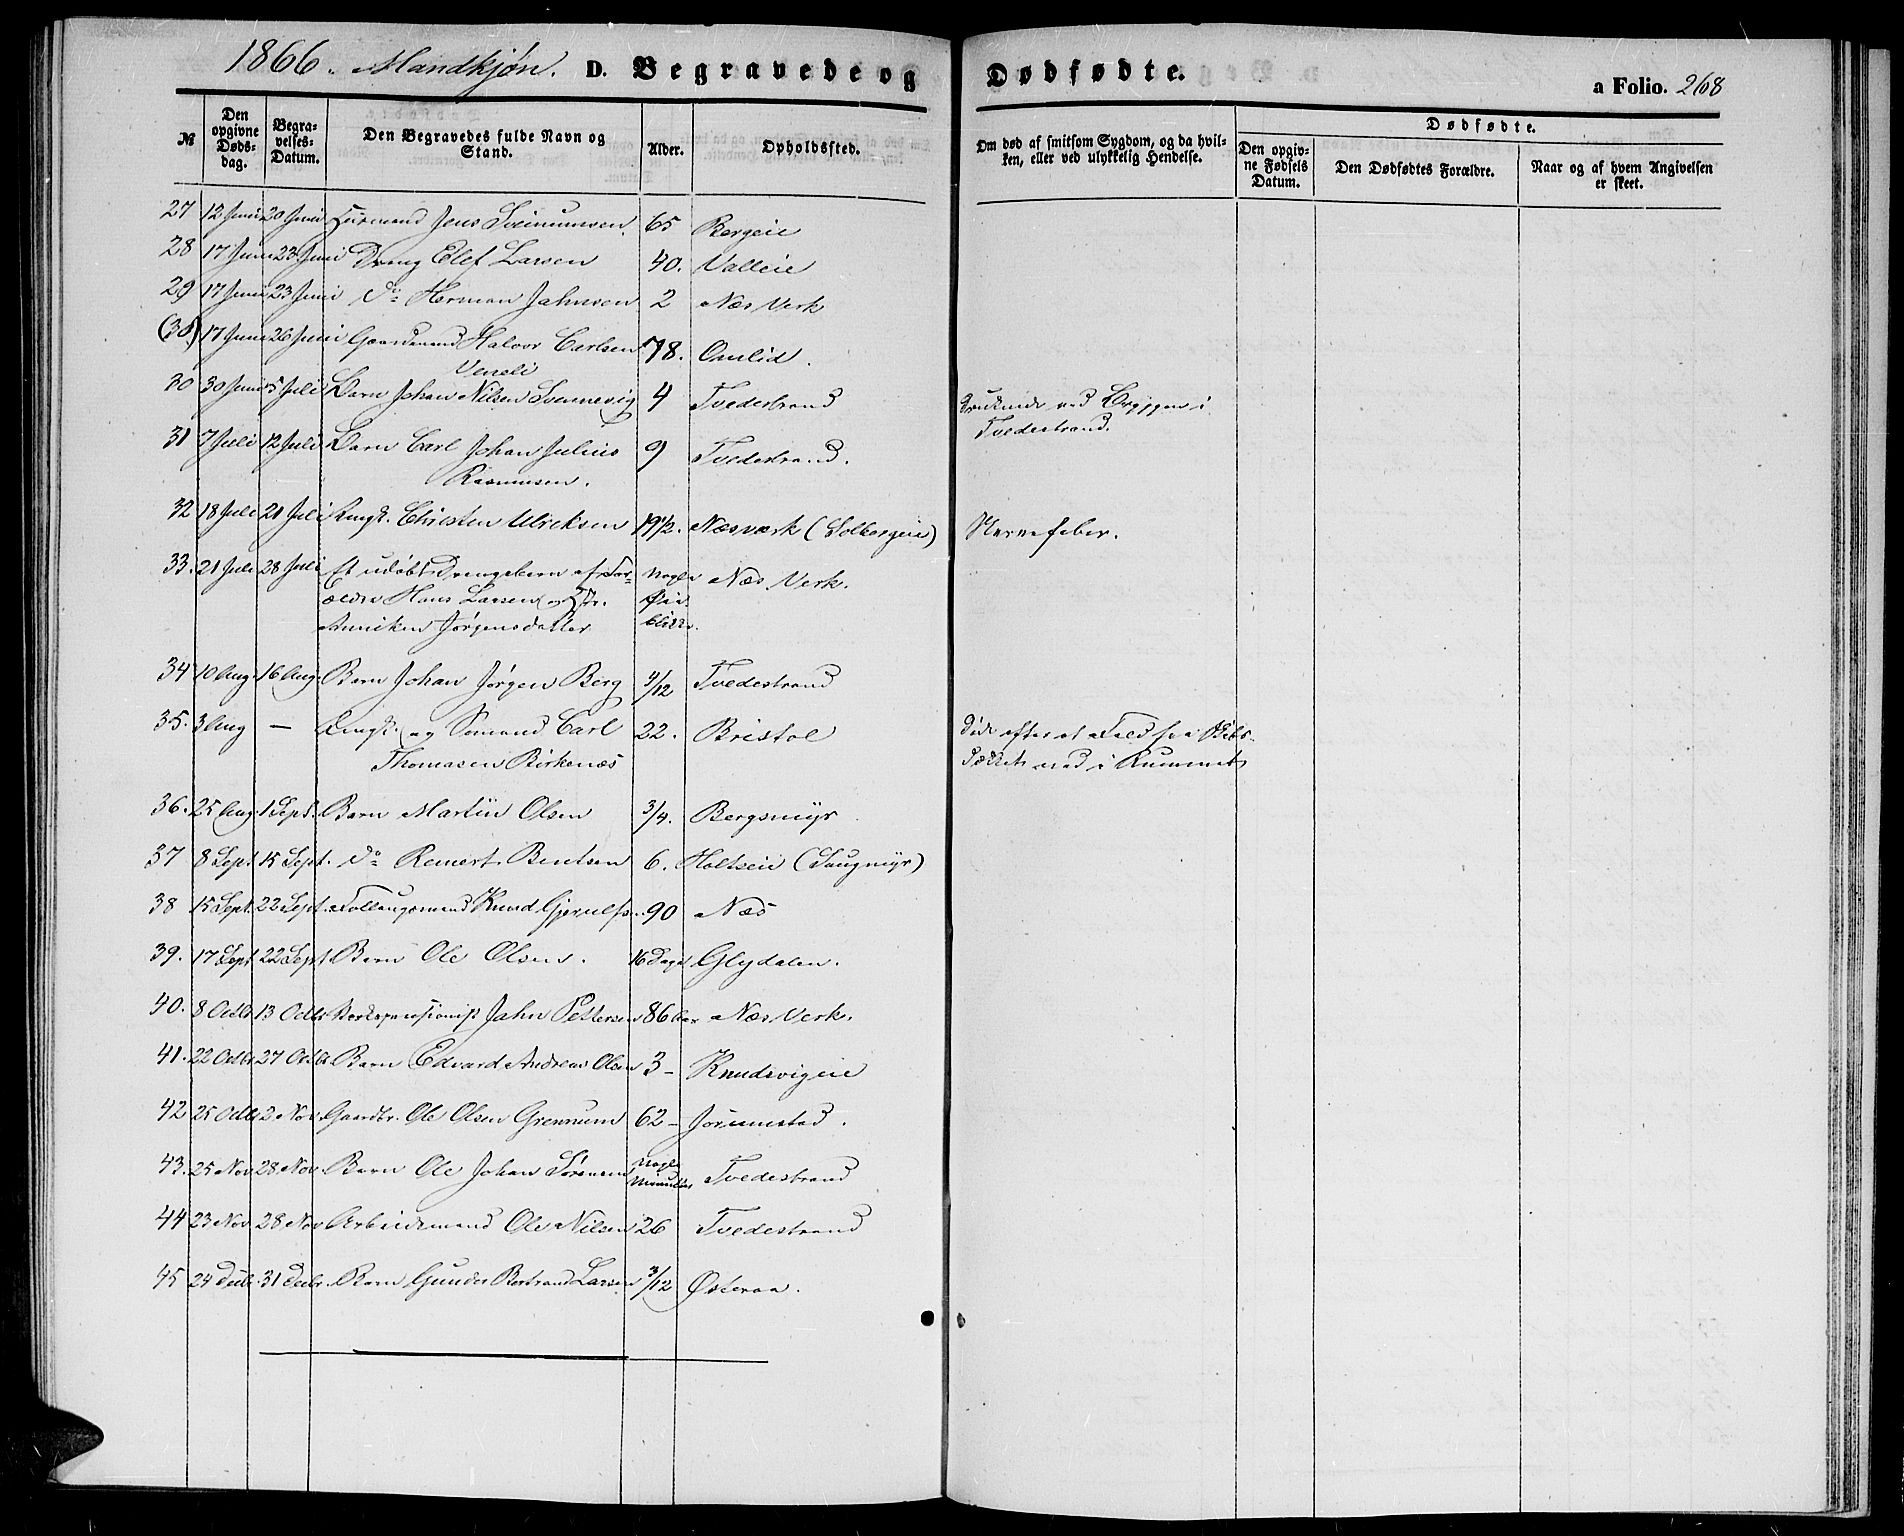 1866. Mandkjøn. D. Begravede og Dødfødte. a Folio. 268
№ Den opgivne Døds-dag. Begra-velses-Datum. Den Begravedes fulde Navn og Stand. Alder. Opholdssted. Om død af smitsom Sygdom, og da hvil-ken, eller ved ulykkelig Hendelse. Dødfødte. Den opgiv-ne Fødsels Datum. Den Dødfødtes Forældre. Naar og af hvem Angivelsen er skeet.
27 12 Juni 20 Juni Huusmand Jens Sveinumsen 65 Bergeie
28 17 Juni 23 Juni Dreng Elef Larsen 40. Valleie
29 17 Juni 23 Juni do Herman Jahnsen 2 Næs Verk
(30) 17 Juni 26 Juni Gaardmand Halvor Carlsen 78. Omlid.
Veneli
30 30 Juni 5 Juli Barn Johan Nilsen Svennevig 4 Tvedestrand Druknede ved Bryggen i
Tvedestrand.
31 7 Juli 12 Juli Barn Carl Johan Julius 9 Tvedestrand.
Rasmusen.
32 18 Juli 21 Juli Ungk. Christen Ulriksen 19 1/2. Næsværk (Solbergeie) Nervefeber.
33. 21 Juli 28 Juli Et udøbt Drengebarn af For- Nogle Næs Verk.
ældre Hans Larsen og Hstr. Øie
Anniken Jørgensdatter blikke.
34 10 Aug. 16 Aug. Barn Johan Jørgen Berg 4/12 Tvedestrand
35. 3 Aug — Ungk. og Sømand Carl 22. Bristol Døde efter et Fald fra Skibs-
Thomasen Birkenæs Dækket ned i Rummet
36. 25 Aug. 1 Sept. Barn Martin Olsen 3/4. Bergsmyr
37 8 Sept 15 Sept. do Reinert Bentsen 6. Holtseie (Saugmyr)
38 15 Sept. 22 Sept. Follaugsmand Knud Gjerulfs. 90 Næs
39. 17 Sept 22 Sept. Barn Ole Olsen. 16 Dage Glydalen.
40. 8 Octbr 13 Octbr Verkspensionist Jahn Pettersen 86 Aar Næs Verk.
41. 22 Octbr 27 Octbr. Barn Edvard Andreas Olsen 3 - Knudsvigeie
42 25 Octbr 2 Nov. Gaardbr. Ole Olsen Grennum 62 - Jorunnstad.
43. 25 Nov 28 Nov. Barn Ole Johan Sørensen Nogle Minutter Tvedestrand
44 23 Nov 28 Nov Arbeidsmand Ole Nilsen 26 Tvedestrand
45 24 Decbr. 31 Decbr. Barn Gunder Bertrand Larsen 3/12 Østeraa.